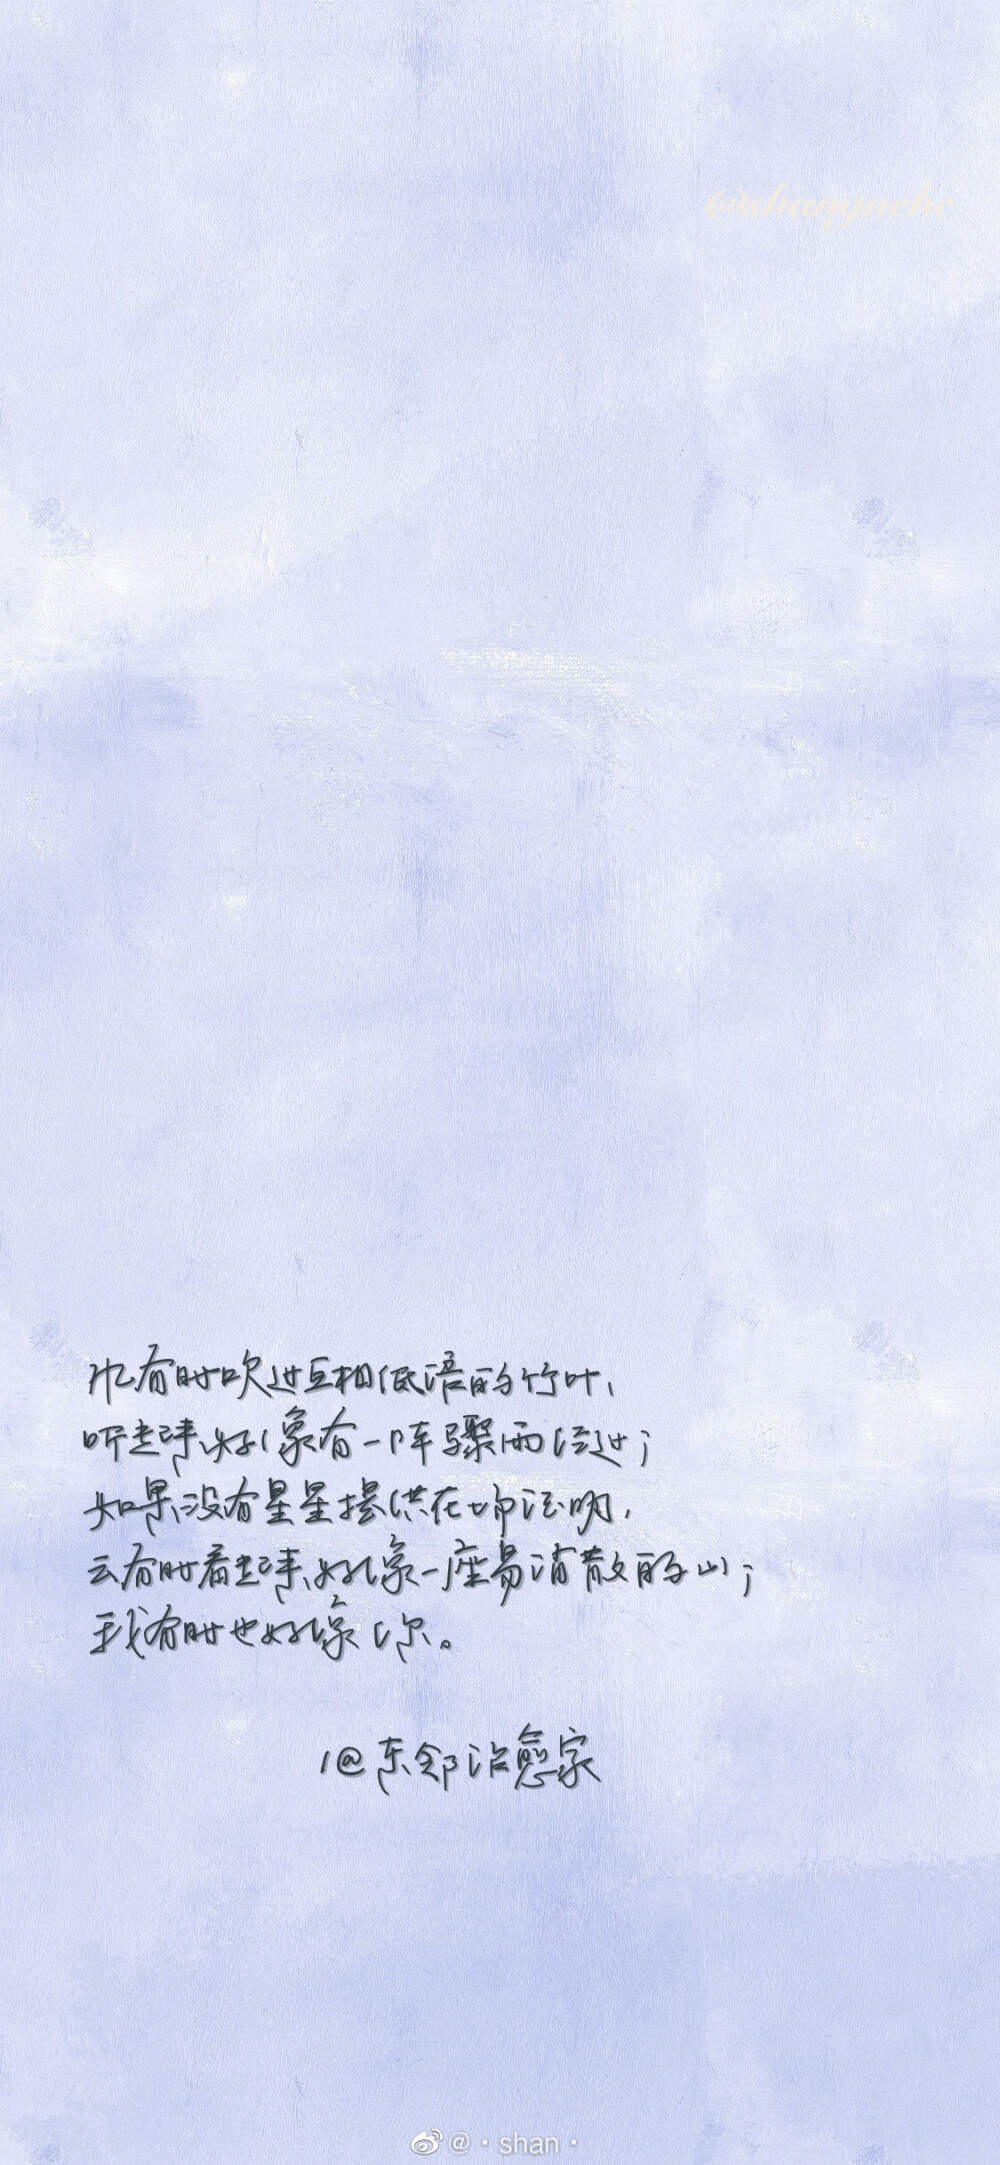 风有时吹过互相低语的竹叶，
听起来好像有一阵骤雨经过；
如果没有星星提供在场证明，
云有时看起来好像一座易消散的山；
我有时也好像你。
/@东邻治愈家
@·shan·